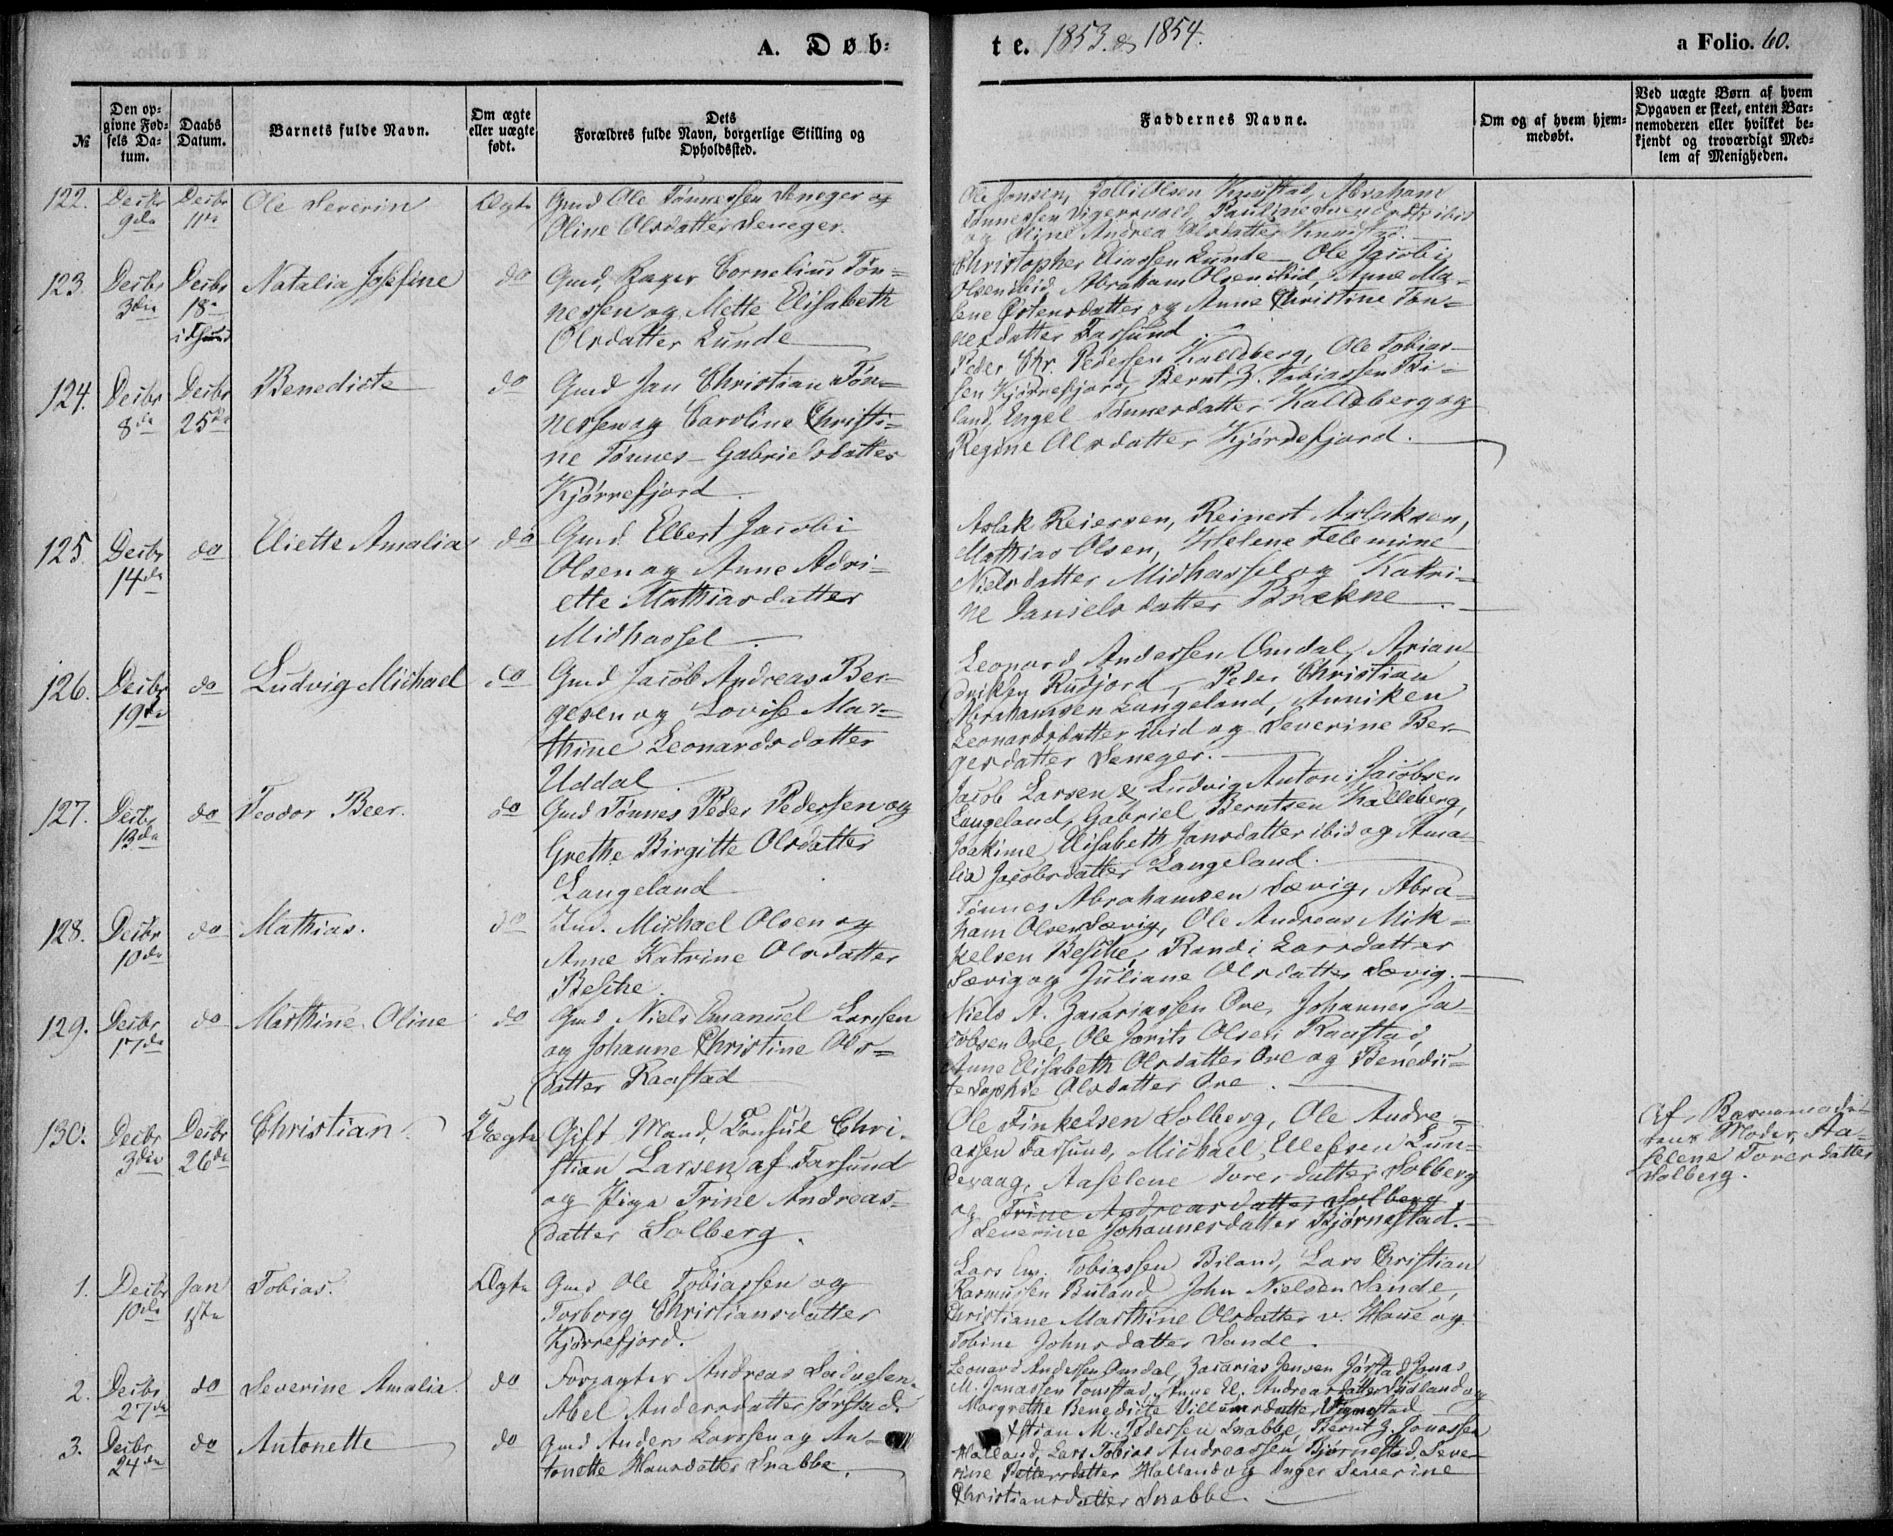 A. Døb-
te. 1853. & 1854.
a Folio. 60.
№
Den op-
givne Fød-
sels Da-
tum.
Daabs
Datum.
Barnets fulde Navn.
Om ægte
eller uægte
født.
Dets
Forældres fulde Navn, borgerlige Stilling og
Opholdssted.
Faddernes Navne.
Om og af hvem hjem-
medøbt.
Ved uægte Børn af hvem
Opgaven er skeet, enten Bar-
nemoderen eller hvilket be-
kjendt og troværdigt Med-
lem af Menigheden.
122.
Decbr
9da
Decbr
11te
Ole Severin
Ægte
Gmd Ole Tønnessen Seneger og
Oline Olsdatter Seneger.
Ole Jonsen, Olsen Abraham
Tønnessen Pauline ibid
og Oline Andrea Olsdatter
123.
Decbr
3die
Decbr
18
Natalia Josefine
do
Gmd, Cornelius Tøn-
nessen og Mette Elisabeth
Olsdatter Lunde
Christopher Eliassen Lunde, Ole Jacobi
Olsen ibid, Abraham Olsen ibid, Anne Ma-
lene Østensdatter og Anne Christine Tøn-
nesdatter Farsund.
124.
Decbr
8de
Decbr
25de
Benedicte
do
Gmd Jan Christian Tøn-
nessen og Caroline Christi-
ne Tønnes-Gabrielsdatter
Kjørrefjord.
Peder Chr. Pedersen Kalleberg, Ole Tobias-
sen Kjørrefjord, Bernt Z. Tobiassen Bi-
land, Engel Tønnesdatter Kalleberg og
Regine Olsdatter Kjørrefjord.
125.
Decbr
14de
do
Eliette Amalia
do
Gmd. Elbert Jacobi
Olsen og Anne Adri-
ette Mathiasdatter
Midhassel.
Aslak Reiersen, Reinert Aslaksen,
Mathias Olsen, Helene Telemine
Nielsdatter Midhassel og Katri-
ne Danielsdatter Brekne.
126.
Decbr
19de
do
Ludvig Michael
do
Gmd Jacob Andreas Ber-
gesen og Lovise Mar-
thine Leonardsdatter
Uddal.
Leonard Andersen Omdal, Arian
Rudjord, Peder Christian
Abrahamsen Langeland, Anniken
Leonardsdatter ibid og Severine Ber-
gesdatter Seneger.
127.
Decbr
13de
do
Teodor Beer.
do
Gmd Tønnes Peder Pedersen og
Grethe Birgitte Olsdatter
Langeland
Jacob Larsen & Ludvig Antoni Jacobsen
Langeland, Gabriel Berntsen Kalleberg,
Joakime Elisabeth Jansdatter ibid og Ama-
lia Jacobsdatter Langeland.
128.
Decbr
10de
do
Mathias.
do
Ind. Michael Olsen og
Anne Katrine Olsdatter
Besche.
Tønnes Abrahamsen Sævig, Abra-
ham Olsen Sævig, Ole Andreas Mik-
kelsen Besche, Randi Larsdatter
Sævig og Juliane Olsdatter Sævig.
129.
Decbr
17de
do
Marthine Oline
do
Gmd Niels Emanuel Larssen
og Johanne Christine Ols-
datter Raastad
Niels A. Zacariassen Ore, Johannes Ja-
cobsen Ore, Ole Jorits Olsen Raastad,
Anne Elisabeth Olsdatter Ore og Benedic-
te Sophie Olsdatter Ore.
130.
Decbr
3die
Decbr
26de
Christian
Uægte
Gift Mand, Consul Chri-
stian Larsen af Farsund
og Pige Trine Andreas-
datter Solberg.
Ole Finkelsen Solberg, Ole Andre-
assen Farsund, Michael Ellefsen Lun-
devaag, Aaselene Toresdatter Solberg
og Trine Andreasdatter Solberg
Severine Johannesdatter Bjørnestad.
Af Barnemode-
rens Moder, Aa-
selene Toresdatter
Solberg.
1.
Decbr
10de
Jan
1ste
Tobias.
Ægte
Gmd Ole Tobiassen og
Torborg Christiansdatter
Kjørrefjord.
Lars Em. Tobiassen Biland, Lars Christian
Rasmussen Buland, John Nielsen Sande,
Christiane Marthine Olsdatter v. Haue og
Tobine Johnsdatter Sande.
2.
Decbr
27de
do
Severine Amalia.
do
Forpagter Andreas Salvesen.
Abel Andersdatter Jørstad.
Leonard Andersen Omdal, Zacarias Jensen Jørstad, Jonas
M. Jonassen Tomstad, Anne El. Andreasdatter og
Margrethe Benedicte Villumsdatter
3.
Decbr
24de
do
Antonette
do
Gmd Anders Larssen og An-
tonette Hansdatter Snabbe.
Stian M. Pedersen Snabbe, Bernt Z Jonassen
Halland, Lars Tobias Andreassen Bjørnestad, Seve-
rine Pettersdatter Halland og Inger Severine
Christiansdatter Snabbe.